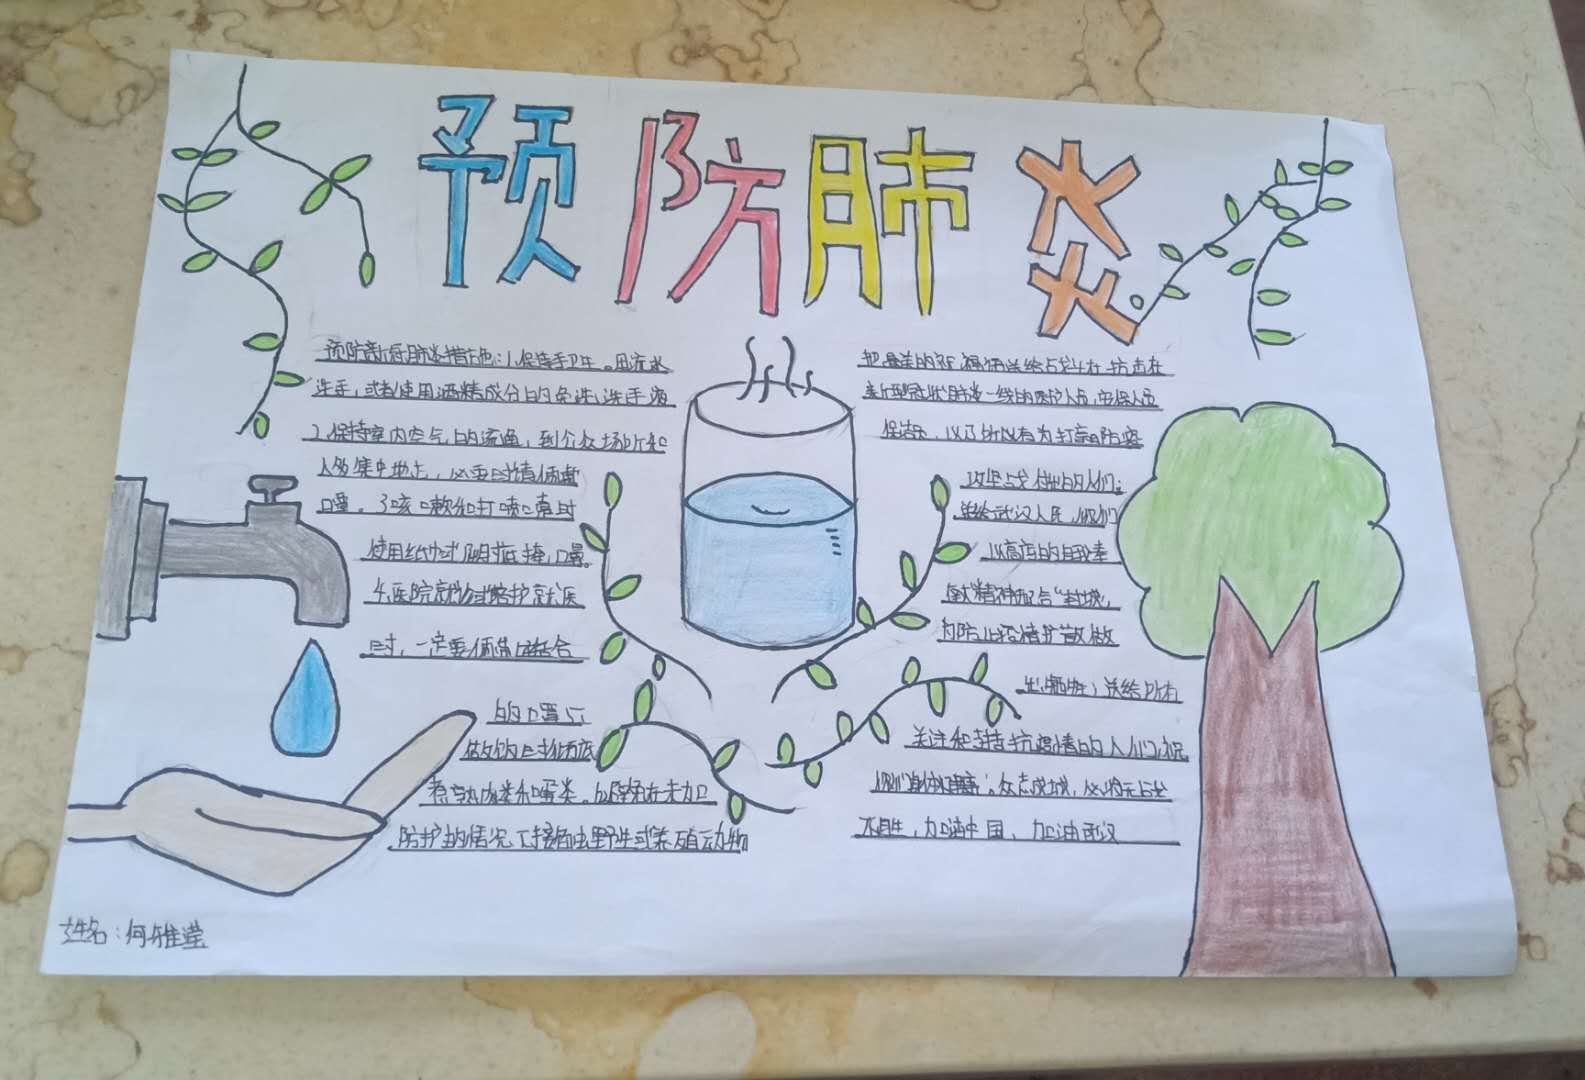 预防肺炎
预防新冠肺炎措施:1.保持手卫生。用流水
洗手,或者使用酒精成分的免洗洗手液
2.保持室内空气的流通,到公众场所和
人多集中地方,必要时请佩戴
口罩。3咳口嗽和打喷嚏时
使用纸巾或屈肘遮掩口鼻。
4.医院就诊或陪护就医
时,一定要佩戴合
的口罩5.
做饭时彻底
煮熟肉类和蛋类。6.避免在未加
防护的情况下接触野生或养殖动物
把最美的祝福送给战斗在抗击在
新型冠状肺炎一线的医护人员,安保人员
保洁员,以及所以有为打赢防疫
攻坚战付出的人们;
送给武汉人民,他们
以高度的自我牺
精神配合“封城”,
为防止疫情扩散做
出牺牲;送给所有
关注和支持抗疫情的人们,祝
你们身体健康;众志成城,必将无战
不胜,加油中国、加油武汉
姓名:何雅滢